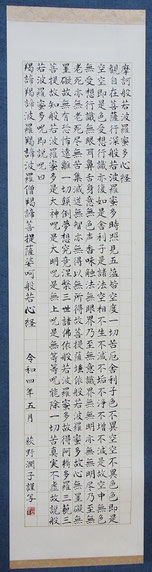 摩訶般若波羅蜜多心経
觀自在菩薩行深般若波羅蜜多時照見五蘊皆空度一切苦厄舍利子色不異空空不異色色即是
空空即是色受想行識亦復如是舍利子是諸法空相不生不滅不垢不淨不增不減是故空中無色
無受想行識無眼耳鼻舌身意無色聲香味觸法無眼界乃至無意識界無無明亦無無明盡乃至無
老死亦無老死盡無苦集滅道無智亦無得以無所得故菩提薩埵依般若波羅蜜多故心無罣礙無
罣礙故無有恐怖遠離一切顛倒夢想究竟涅槃三世諸佛依般若波羅蜜多故得阿耨多羅三藐三
菩提故知般若波羅蜜多是大神呪是大明呪是無上呪是無等等呪能除一切苦真実不虚故説般
若波羅蜜多呪即説呪曰
羯諦羯諦波羅羯諦波羅僧羯諦菩提薩婆呵般若心経
令和四年五月 野潤子謹写